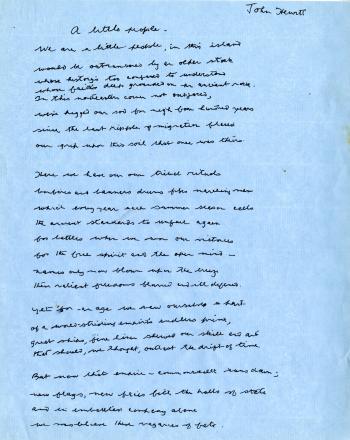 John Hewitt
A little people.
We are a little people, in this island
would be outnumbered by an older stock
whose history's too confused to understand
whose faith's deep grounded on an ancient rock.
In this northeastern corner not outpaced,
we've hugged our soil for nigh four hundred years
since the last ripple of migration placed
our upon this soil that once was theirs.
Here we have our own tribal rituals
bonfires and banners drums pipes marching men
which every year each summer season calls
the ancient standards to unfurl again
for battles when we won our victories
for the free spirit and the open mind –
names only now blown upon the breeze
their valiant freedoms blurred and ill defined.
Yet for an age we knew ourselves a part
of a world-striding empire's endless prime,
great ships, fine linen showed our skill and art
that should, we thought, outlast the drift of time.
But now that empire – commonwealth runs down;
new flags, new fill the halls of state
and in embattled company alone
we these vagaries of fate.